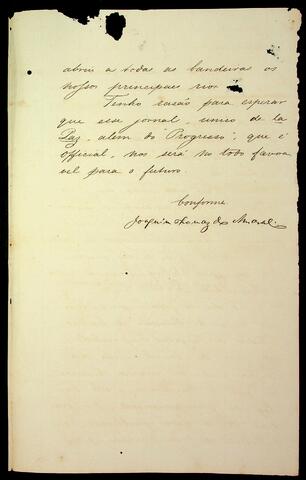 abriu a todas as bandeiras os
nossos principaes rios.
Tenho rasão para esperar
que esse jornal, unico de la
Paz, alem do "Progresso", que é
official, nos será no todo favora
vel para o futuro.
Conforme
Joaquim Thomaz do Amaral